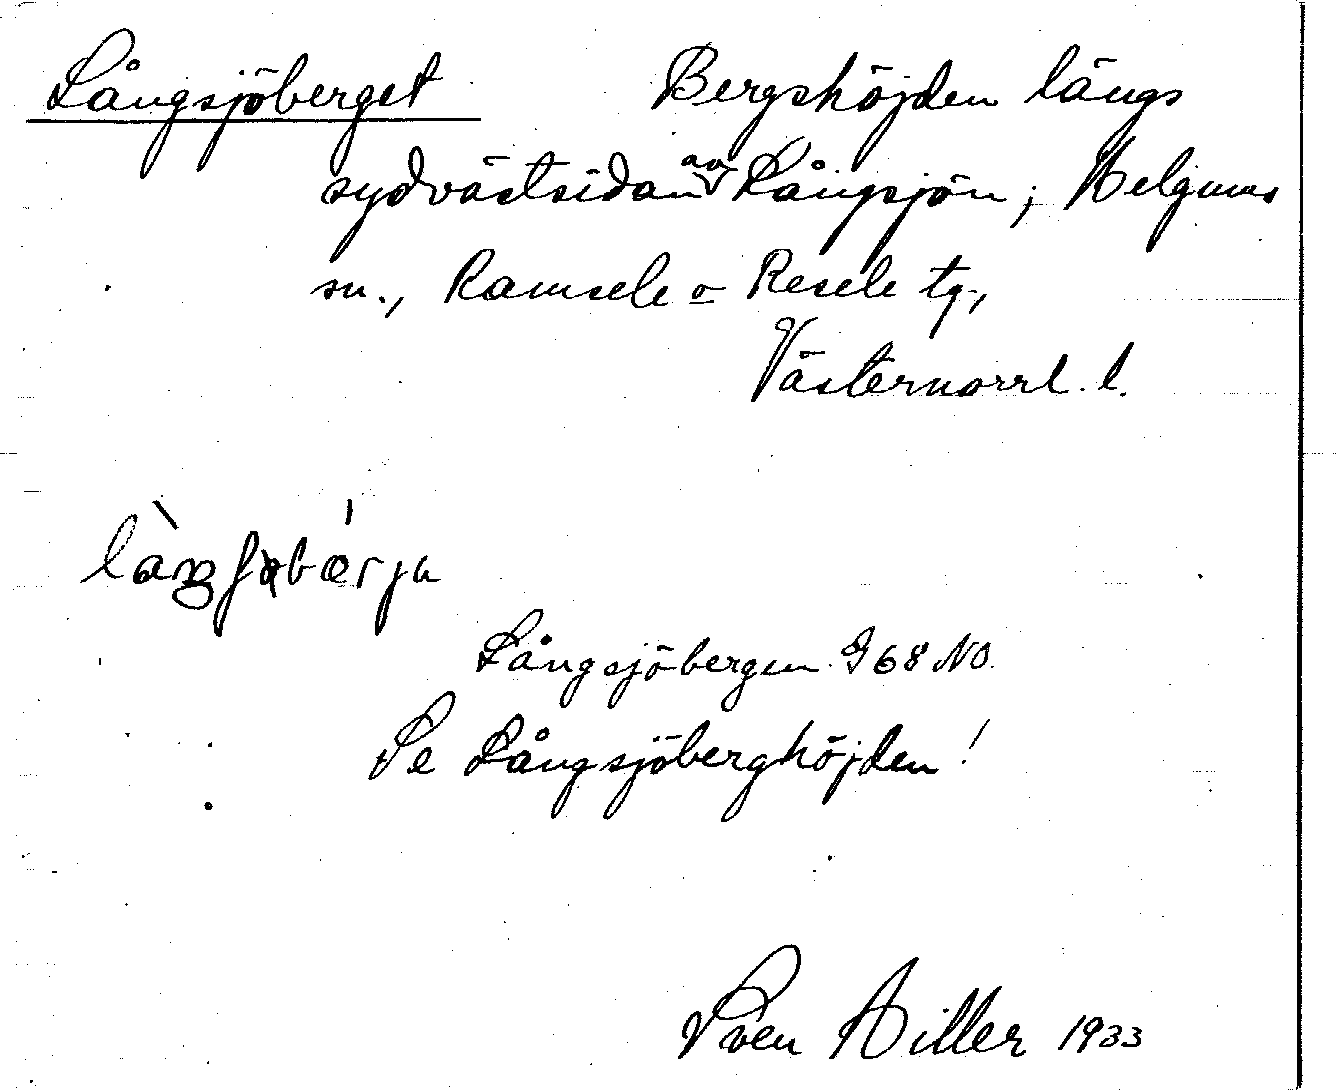 Långsjöberget Bergshöjden längs
sydvästsidan av Långsjön; Helgums
sn., Ramsele o Resele tg.,
Västernorrl. l.
Långsjöbergen G68 NO.
Se Långsjöberghöjden!
Sven Hiller 1933